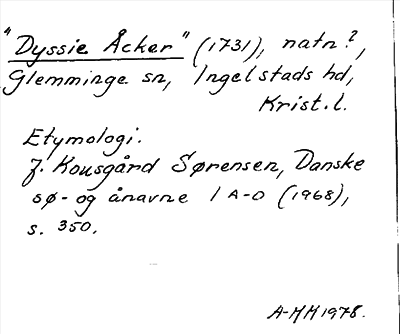 "Dyssie Åcker" (1731), natn?,
Glemminge sn, Ingelstads hd,
Krist.l.
Etymologi.
J. Kousgård Sørensen, Danske
sø- og ånavne 1 A-D (1968),
s. 350.
A-MH 1978.